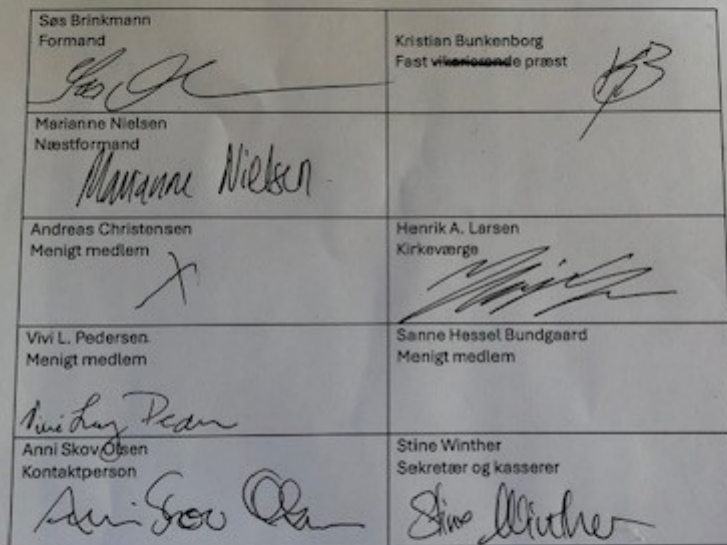 Søs Brinkmann
Formand
Kristian Bunkenborg
Fast vikarierende præst
KB
Marianne Nielsen
Næstformand
Marianne Nielsen
Andreas Christensen
Menigt medlem
X
Henrik A. Larsen
Kirkeværge
Vivi L. Pedersen
Menigt medlem
Sanne Hessel Bundgaard
Menigt medlem
Anni Skov Olsen
Kontaktperson
Anni Skov Olsen
Stine Winther
Sekretær og kasserer
Stine Winther